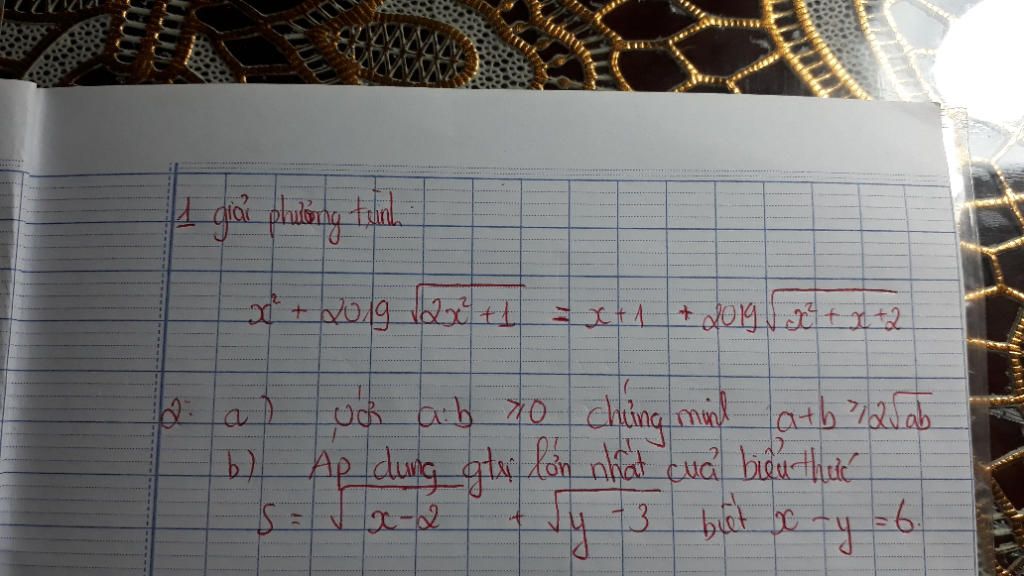 1 giải phương trình
x² + 2019 √(2x² + 1) = x + 1 + 2019 √(x² + x + 2)
2: a) Với a:b ≥ 0 chứng minh a + b ≥ 2√ab
b) Áp dụng gtrị lớn nhất cuả biểu thức
S = √(x - 2) + √(y - 3) biết x - y = 6.